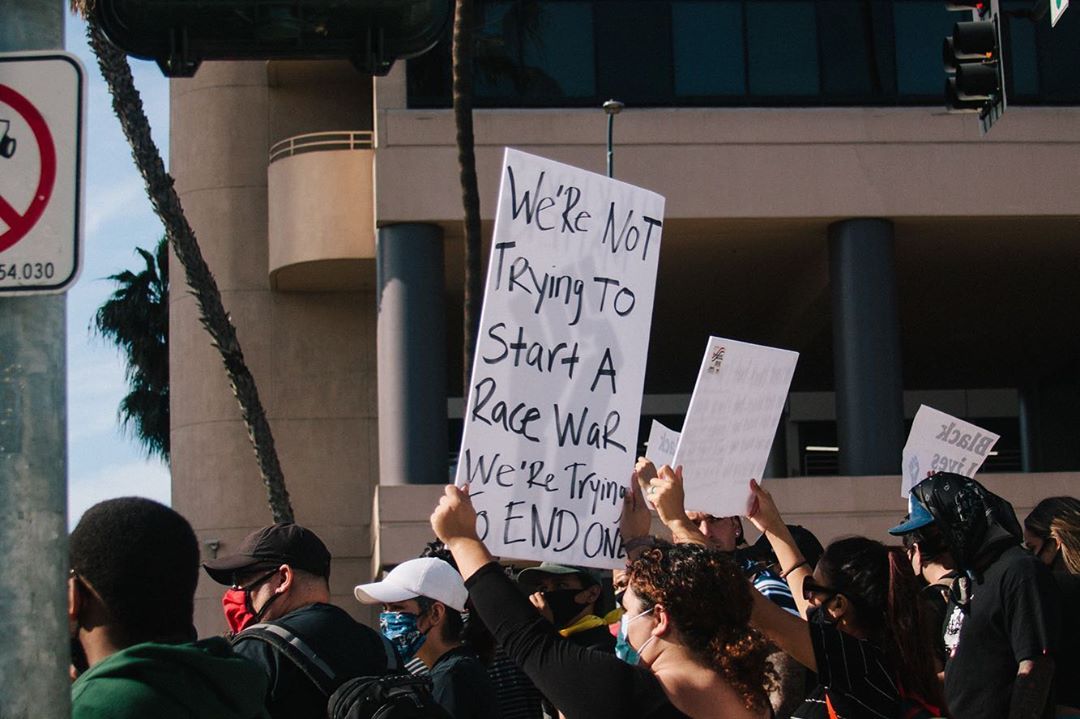 54.030
We're Not
Trying To
Start A
Race War
We're Trying
To END ONE
Black
Lives